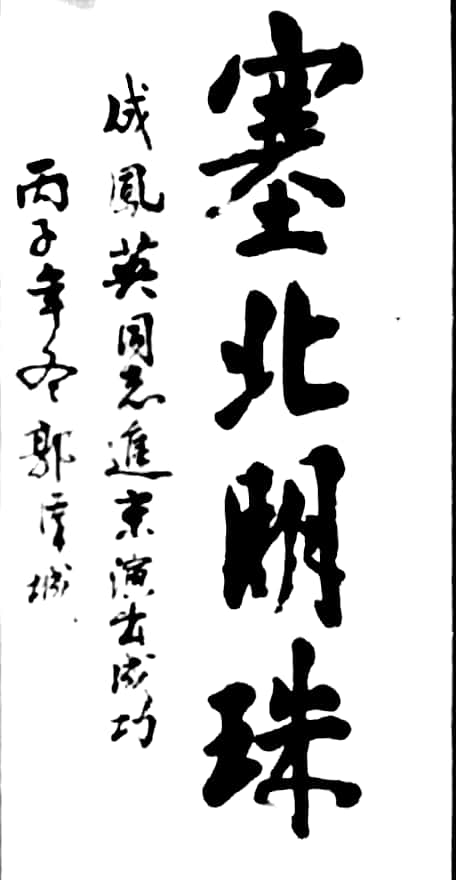 塞北明珠
成鳳英同志進京演出成功
丙子年冬 郭城